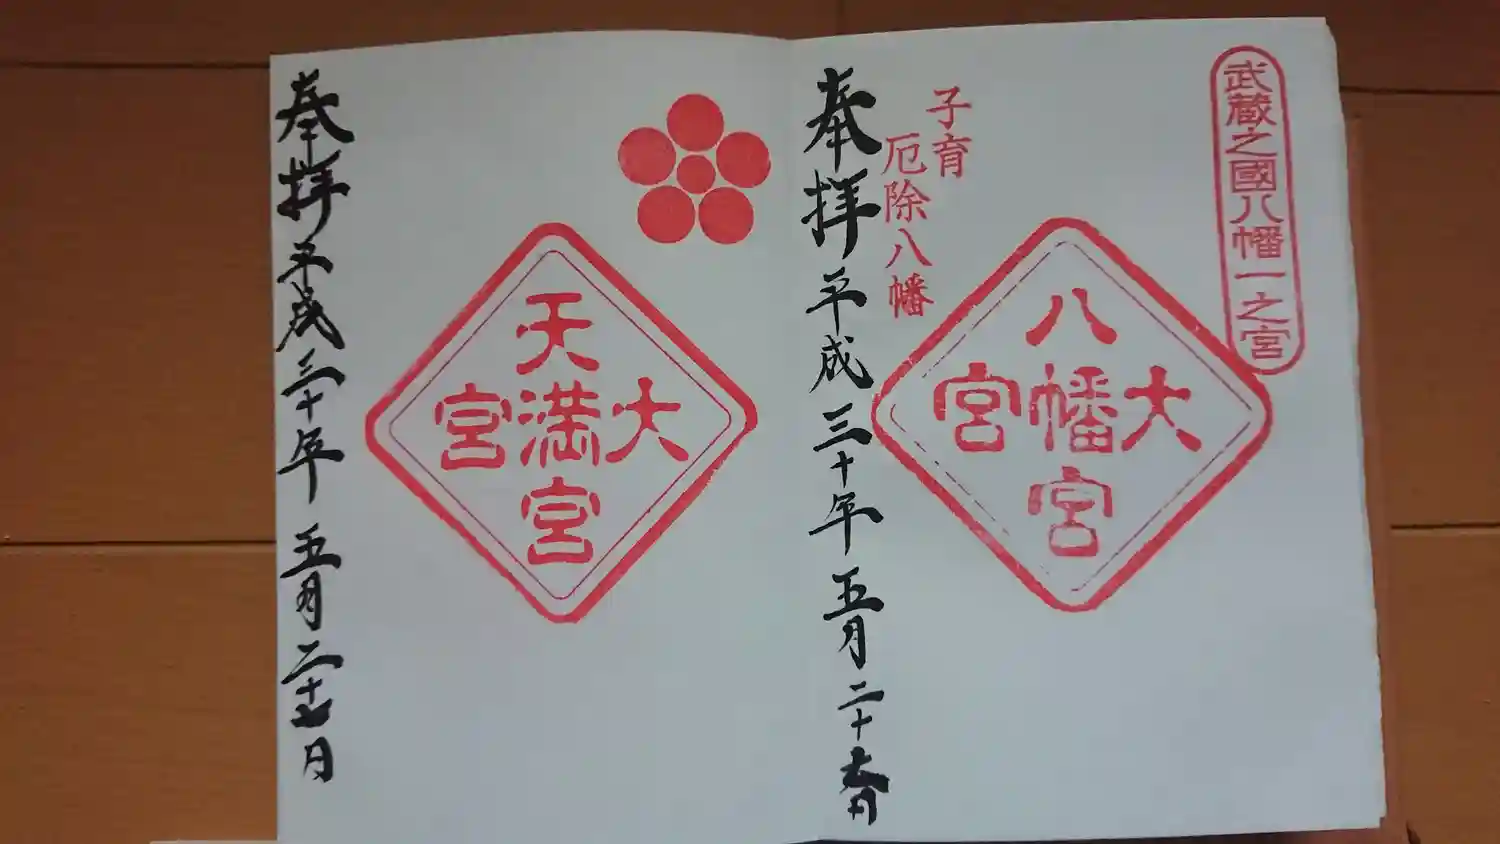 武蔵之國八幡一之宮
大宮
八幡宮
子育
厄除八幡
奉拝 平成三十年 五月 二十
大宮
天満宮
奉拝 平成三十年 五月 二十 日